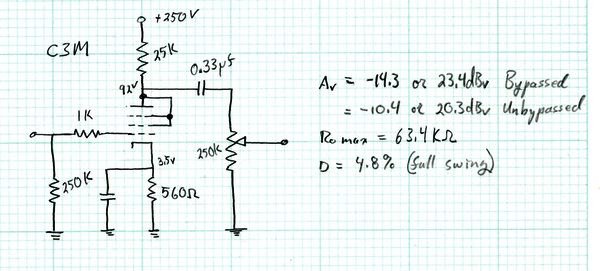 +250V
C3M
25K
0.33µf
92V
1K
3.5V
250K
250K
560Ω
Av = -14.3 or 23.4dBv Bypassed
= -10.4 or 20.3dBv Unbypassed
Ro max = 63.4KΩ
D = 4.8% (full swing)